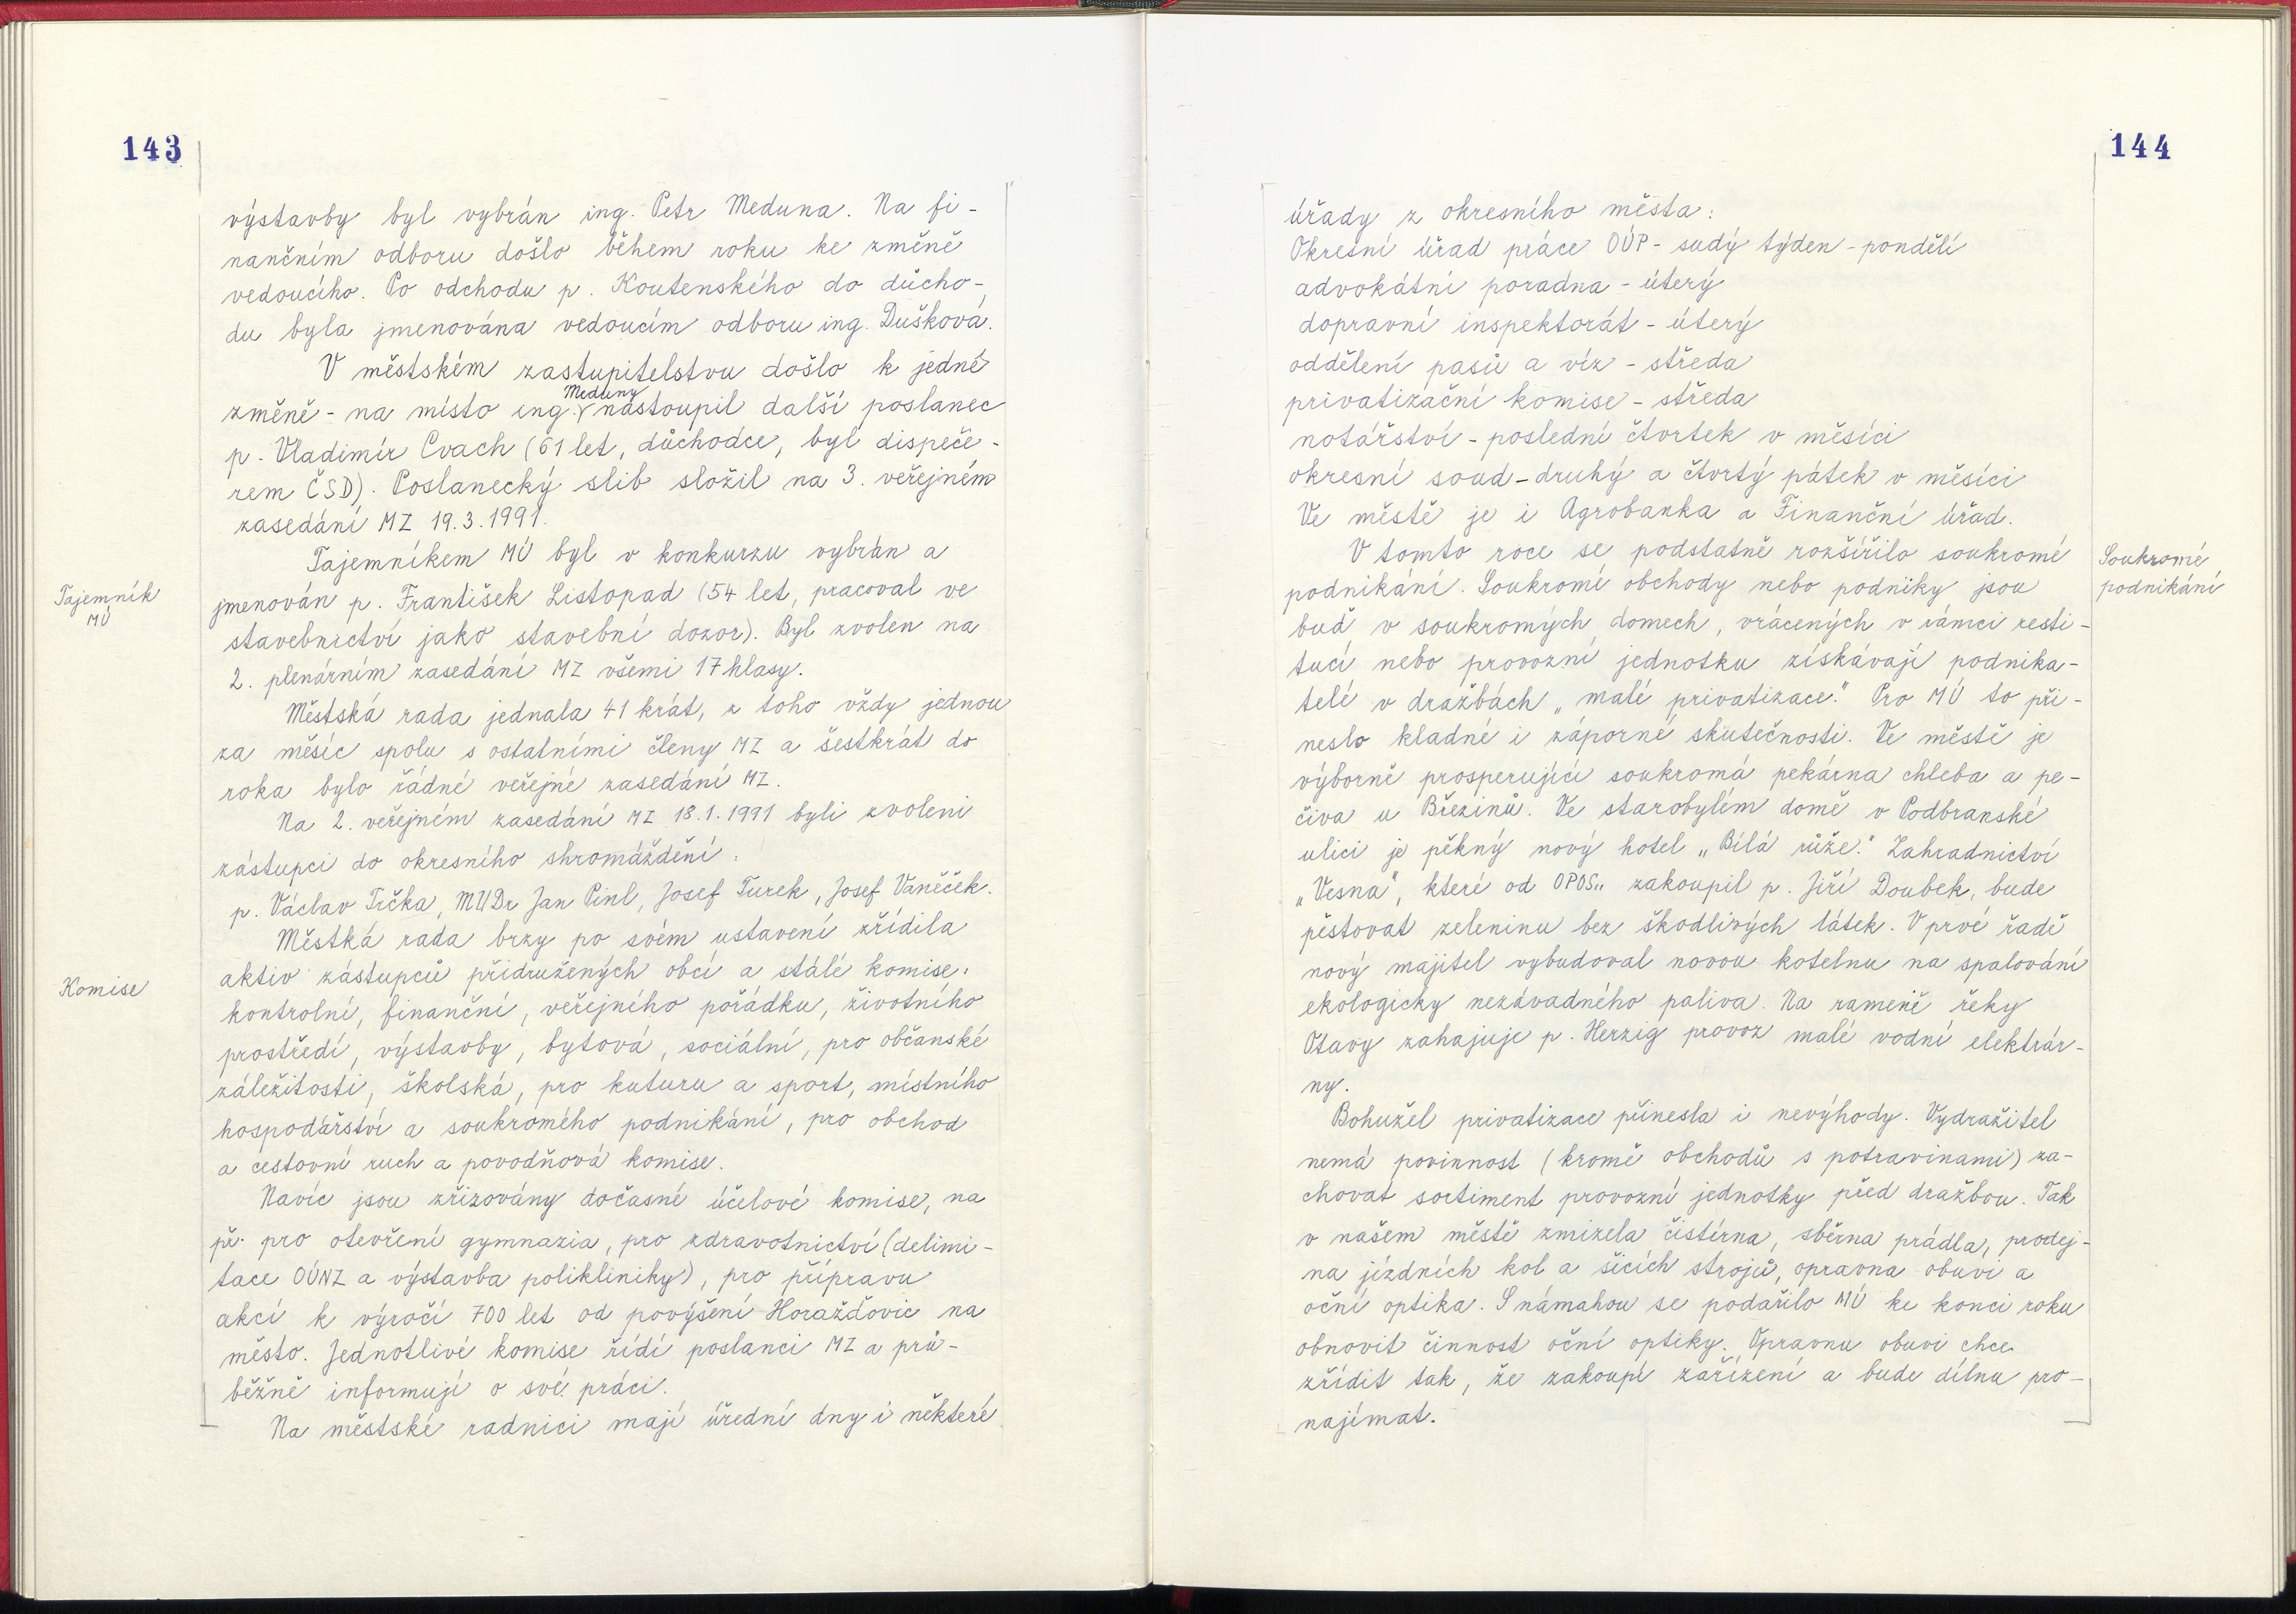 143
výstavby byl vybrán ing. Petr Meduna. Na fi-
nančním odboru došlo během roku ke změně
vedoucího. Po odchodu p. Koutenského do důcho-
du byla jmenována vedoucím odboru ing. Dušková.
V městském zastupitelstvu došlo k jedné
Meduny
změně - na místo ing. nastoupil další poslanec
p. Vladimír Cvach (61 let, důchodce, byl dispeče-
rem ČSD). Poslanecký slib složil na 3. veřejném
zasedání MZ 19.3.1991.
Tajemníkem MÚ byl v konkurzu vybrán a
Tajemník
MÚ
jmenován p. František Listopad (54 let, pracoval ve
stavebnictví jako stavební dozor). Byl zvolen na
2. plenárním zasedání MZ všemi 17 hlasy.
Městská rada jednala 41 krát, z toho vždy jednou
za měsíc spolu s ostatními členy MZ a šestkrát do
roka bylo řádné veřejné zasedání MZ.
Na 2. veřejném zasedání MZ 18.1.1991 byli zvoleni
zástupci do okresního shromáždění:
p. Václav Trčka, MUDr Jan Pinl, Josef Turek, Josef Vaněček.
Městká rada brzy po svém ustavení zřídila
aktiv zástupců přidružených obcí a stálé komise:
Komise
kontrolní, finanční, veřejného pořádku, životního
prostředí, výstavby, bytová, sociální, pro občanské
záležitosti, školská, pro kuturu a sport, místního
hospodářství a soukromého podnikání, pro obchod
a cestovní ruch a povodňová komise.
Navíc jsou zřizovány dočasné účelové komise, na
př. pro otevření gymnazia, pro zdravotnictví (delimi-
tace OÚNZ a výstavba polikliniky), pro přípravu
akcí k výročí 700 let od povýšení Horažďovic na
město. Jednotlivé komise řídí poslanci MZ a prů-
běžně informují o své práci.
Na městské radnici mají úřední dny i některé
144
úřady z okresního města:
Okresní úřad práce OÚP - sudý týden - pondělí
advokátní poradna - úterý
dopravní inspektorát - úterý
oddělení pasů a víz - středa
privatizační komise - středa
notářství - poslední čtvrtek v měsíci
okresní soud - druhý a čtvrtý pátek v měsíci
Ve městě je i Agrobanka a Finanční úřad.
V tomto roce se podstatně rozšířilo soukromé
Soukromé
podnikání
podnikání. Soukromé obchody nebo podniky jsou
buď v soukromých domech, vrácených v rámci resti-
tucí nebo provozní jednotku získávají podnika-
telé v dražbách „malé privatizace." Pro MÚ to při-
neslo kladné i záporné skutečnosti. Ve městě je
výborně prosperující soukromá pekárna chleba a pe-
čiva u Březinů. Ve starobylém domě v Podbranské
ulici je pěkný nový hotel „Bílá růže." Zahradnictví
„Vesna", které od OPOS„ zakoupil p. Jiří Doubek, bude
pěstovat zeleninu bez škodlivých látek. V prvé řadě
nový majitel vybudoval novou kotelnu na spalování
ekologicky nezávadného paliva. Na rameně řeky
Otavy zahajuje p. Herzig provoz malé vodní elektrár-
ny.
Bohužel privatizace přinesla i nevýhody. Vydražitel
nemá povinnost (kromě obchodů s potravinami) za-
chovat sortiment provozní jednotky před dražbou. Tak
v našem městě zmizela čistírna, sběrna prádla, prodej-
na jízdních kol a šicích strojů, opravna obuvi a
oční optika. S námahou se podařilo MÚ ke konci roku
obnovit činnost oční optiky. Opravnu obuvi chce
zřídit tak, že zakoupí zařízení a bude dílnu pro-
najímat.